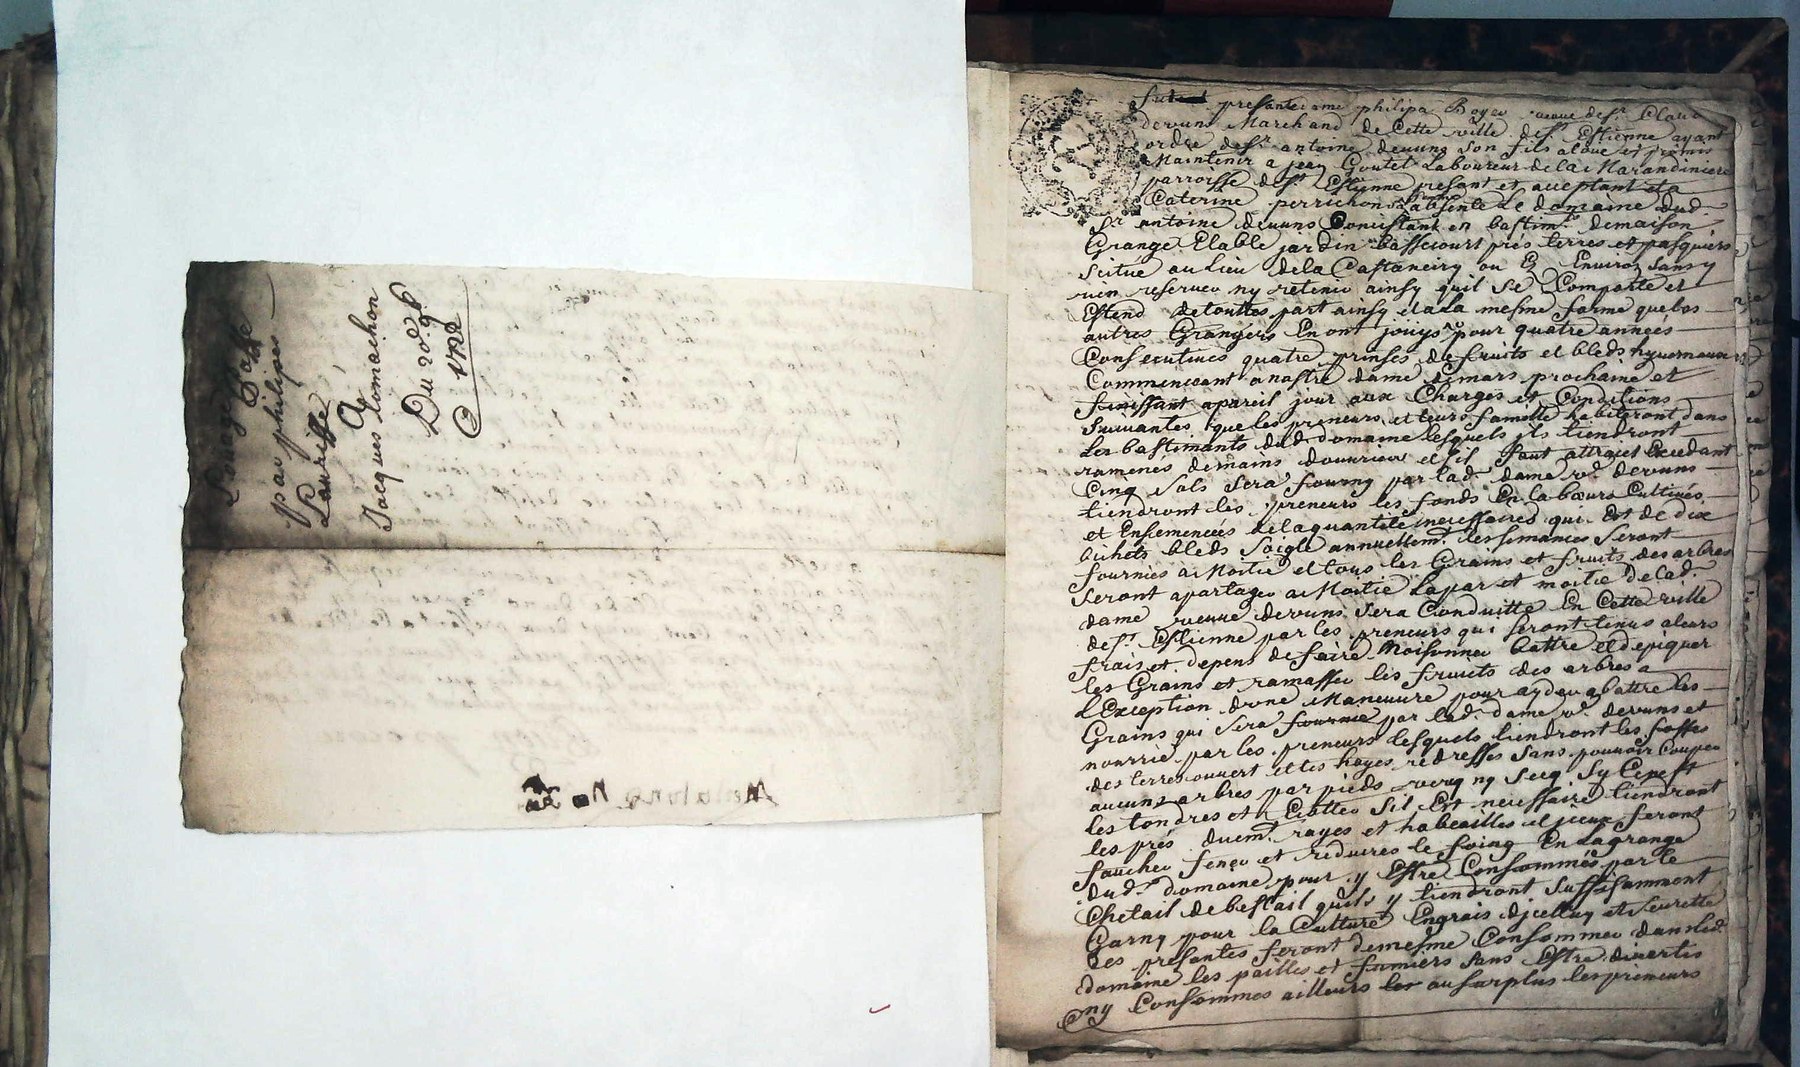 Louage
par philipes
Laurisse
A
Jacques Lomaihon
Du 20e 9b
1712
fut presante dame philipa Boyer veuve de sr. Claude
devuns Marchand de Cette ville de st. Estienne ayant
ordre de sr. antoine devuns son fils a loué et promis
Maintenir a jean Goutet Laboureur de la Marandiniere
parroisse de st. Estienne presant et acceptant et a
Caterine perrichon sa femme absente Le domaine dud.
sr. antoine devuns Consistant en bastimt. de maison
Grange Etable jardin bassecourt prés terres et pasquiers
scitué au lieu de la Castaneiry ou Es Environ sans y
rien reserver ny retenir ainsy quil se Comporte et
Estend de touttes part ainsy et a la mesme forme que les
autres Grangers En ont jouys pour quatre années
Consecutives quatre prinses de fruits et bleds hyvernaux
Commencant a nostre dame de mars prochaine et
finissant a pareil jour aux Charges et Conditions
Suivantes que les preneurs et leurs famille habiteront dans
Les bastimants dud. domaine lesquels ils tiendront
ramenés de mains douvrier et sil faut attraict Excedant
Cinq sols sera fourny par lad. dame ve. devuns
tiendront les preneurs les fonds En labœurs Cultivés
et Ensemencées de la quantité necessaires qui Est de dix
bichets bleds Soigle annuellemt. les semances seront
fournies a Moitie et tous les Grains et fruits des arbres
seront a partager a Moitie La par et moitie de lad.
dame veuve devuns sera Conduitte En Cette ville
de st. Estienne par les preneurs qui seront tenus a leurs
frais et depens de faire Moisonner battre et depiquer
les Grains et ramasser les fruits des arbres a
L'Exception dune Maneuvre pour ayder a battre les
Grains qui sera fournie par lad. dame ve. devuns et
nourrie par les preneurs lesquels tiendront les fosses
des terres ouvert et les hayes redressés sans pouvoir couper
aucuns arbres par pieds verg ny secq Sy Ce nest
les tondres et Esclotter Sil Est necessaire tiendront
les prés duemt. rayes et habeailles et jceux feront
faucher fener et reduires le foing En la grange
dud. domaine pour y Estre Consommés par le
Chetail de bestail quils y tiendront suffisamment
Garny pour la Culture Engrais djcelluy et seurette
des presantes feront de mesme Consommer dans led.
domaine les pailles et fumiers sans Estre divertis
ny Consommés ailleurs au surplus les preneurs